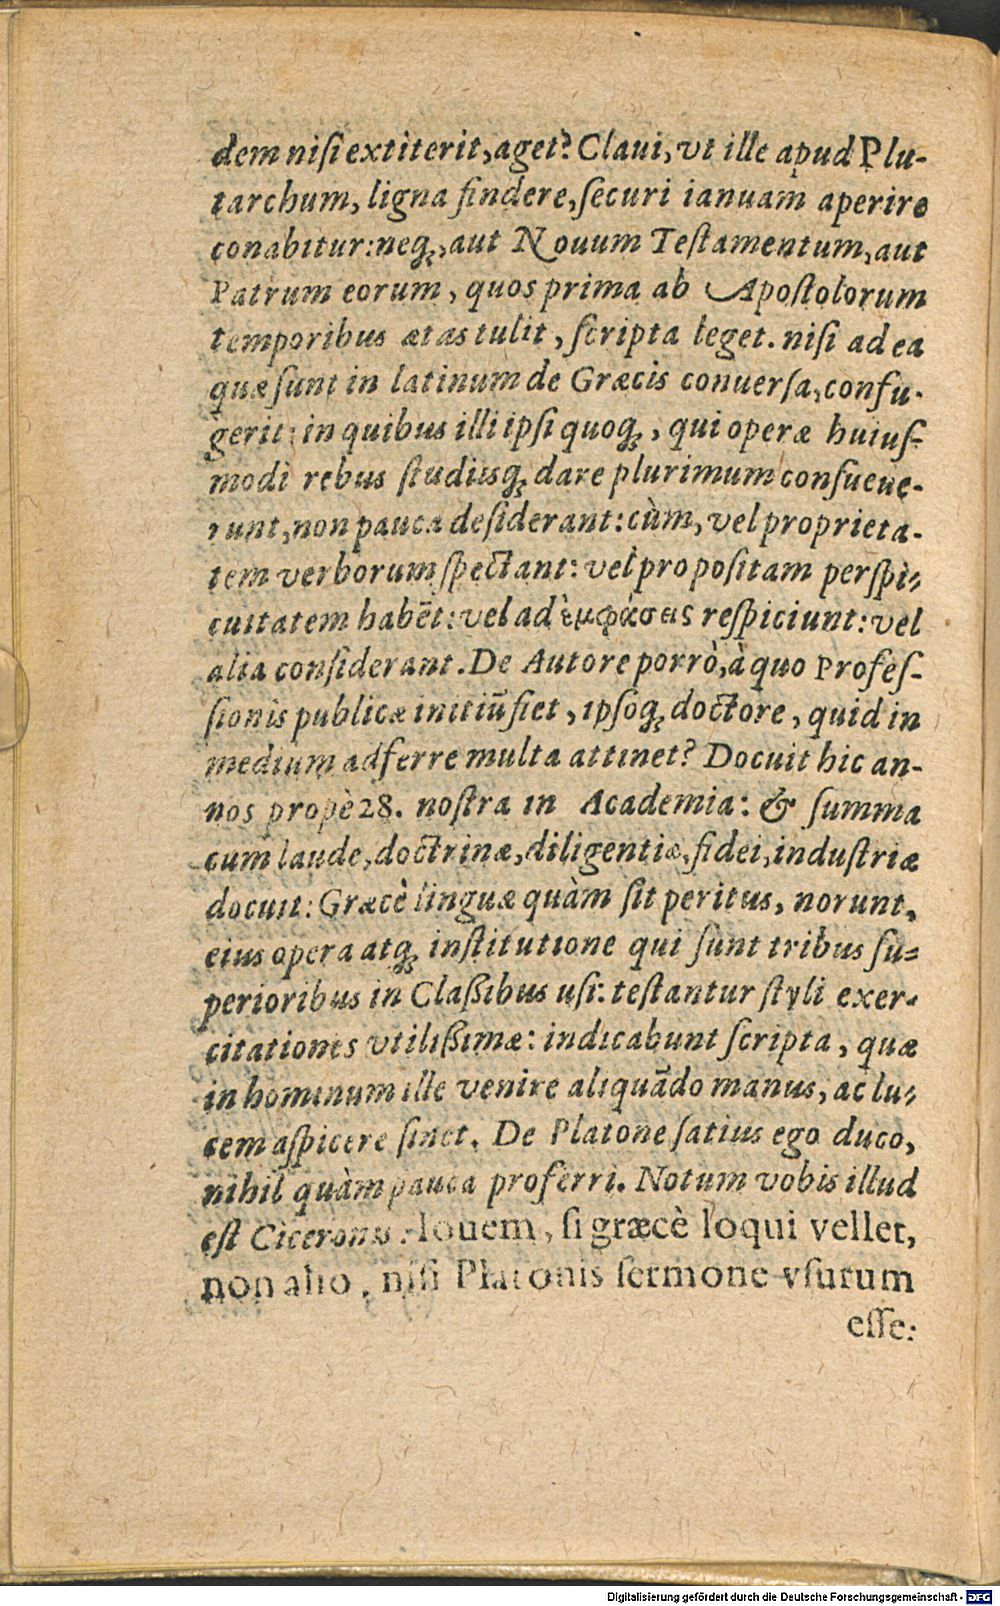 dem niſi extiterit, aget? Claui, vt ille apud Plu-
tarchum, ligna findere, ſecuri ianuam aperire
conabitur: neq;, aut Nouum Teſtamentum, aut
Patrum eorum, quos prima ab Apoſtolorum
temporibus ætas tulit, ſcripta leget. niſi ad ea
quæ ſunt in latinum de Græcis conuerſa, confu-
gerit: in quibus illi ipſi quoq;, qui operæ huiuſ-
modi rebus ſtudiisq; dare plurimum conſueue-
runt, non pauca deſiderant: cùm, vel proprieta-
tem verborum ſpectant: vel propoſitam perſpi-
cuitatem habēt: vel ad ἐμφάσεις reſpiciunt: vel
alia conſiderant. De Autore porrò, à quo Profeſ-
ſionis publicæ initiū fiet, ipſoq; doctore, quid in
medium adferre multa attinet? Docuit hic an-
nos propè 28. noſtra in Academia: & ſumma
cum laude, doctrinæ, diligentiæ, fidei, induſtriæ
docuit: Græcè linguæ quàm ſit peritus, norunt,
eius opera atq; inſtitutione qui ſunt tribus ſu-
perioribus in Claßibus uſi: teſtantur ſtyli exer-
citationes vtilißimæ: indicabunt ſcripta, quæ
in hominum ille venire aliquādo manus, ac lu-
cem aſpicere ſinet. De Platone ſatius ego duco,
nihil quàm pauca proferri. Notum vobis illud
eſt Ciceronis: Iouem, ſi græcè loqui vellet,
non alio, niſi Platonis ſermone vſurum
eſſe:
Digitalisierung gefördert durch die Deutsche Forschungsgemeinschaft - DFG